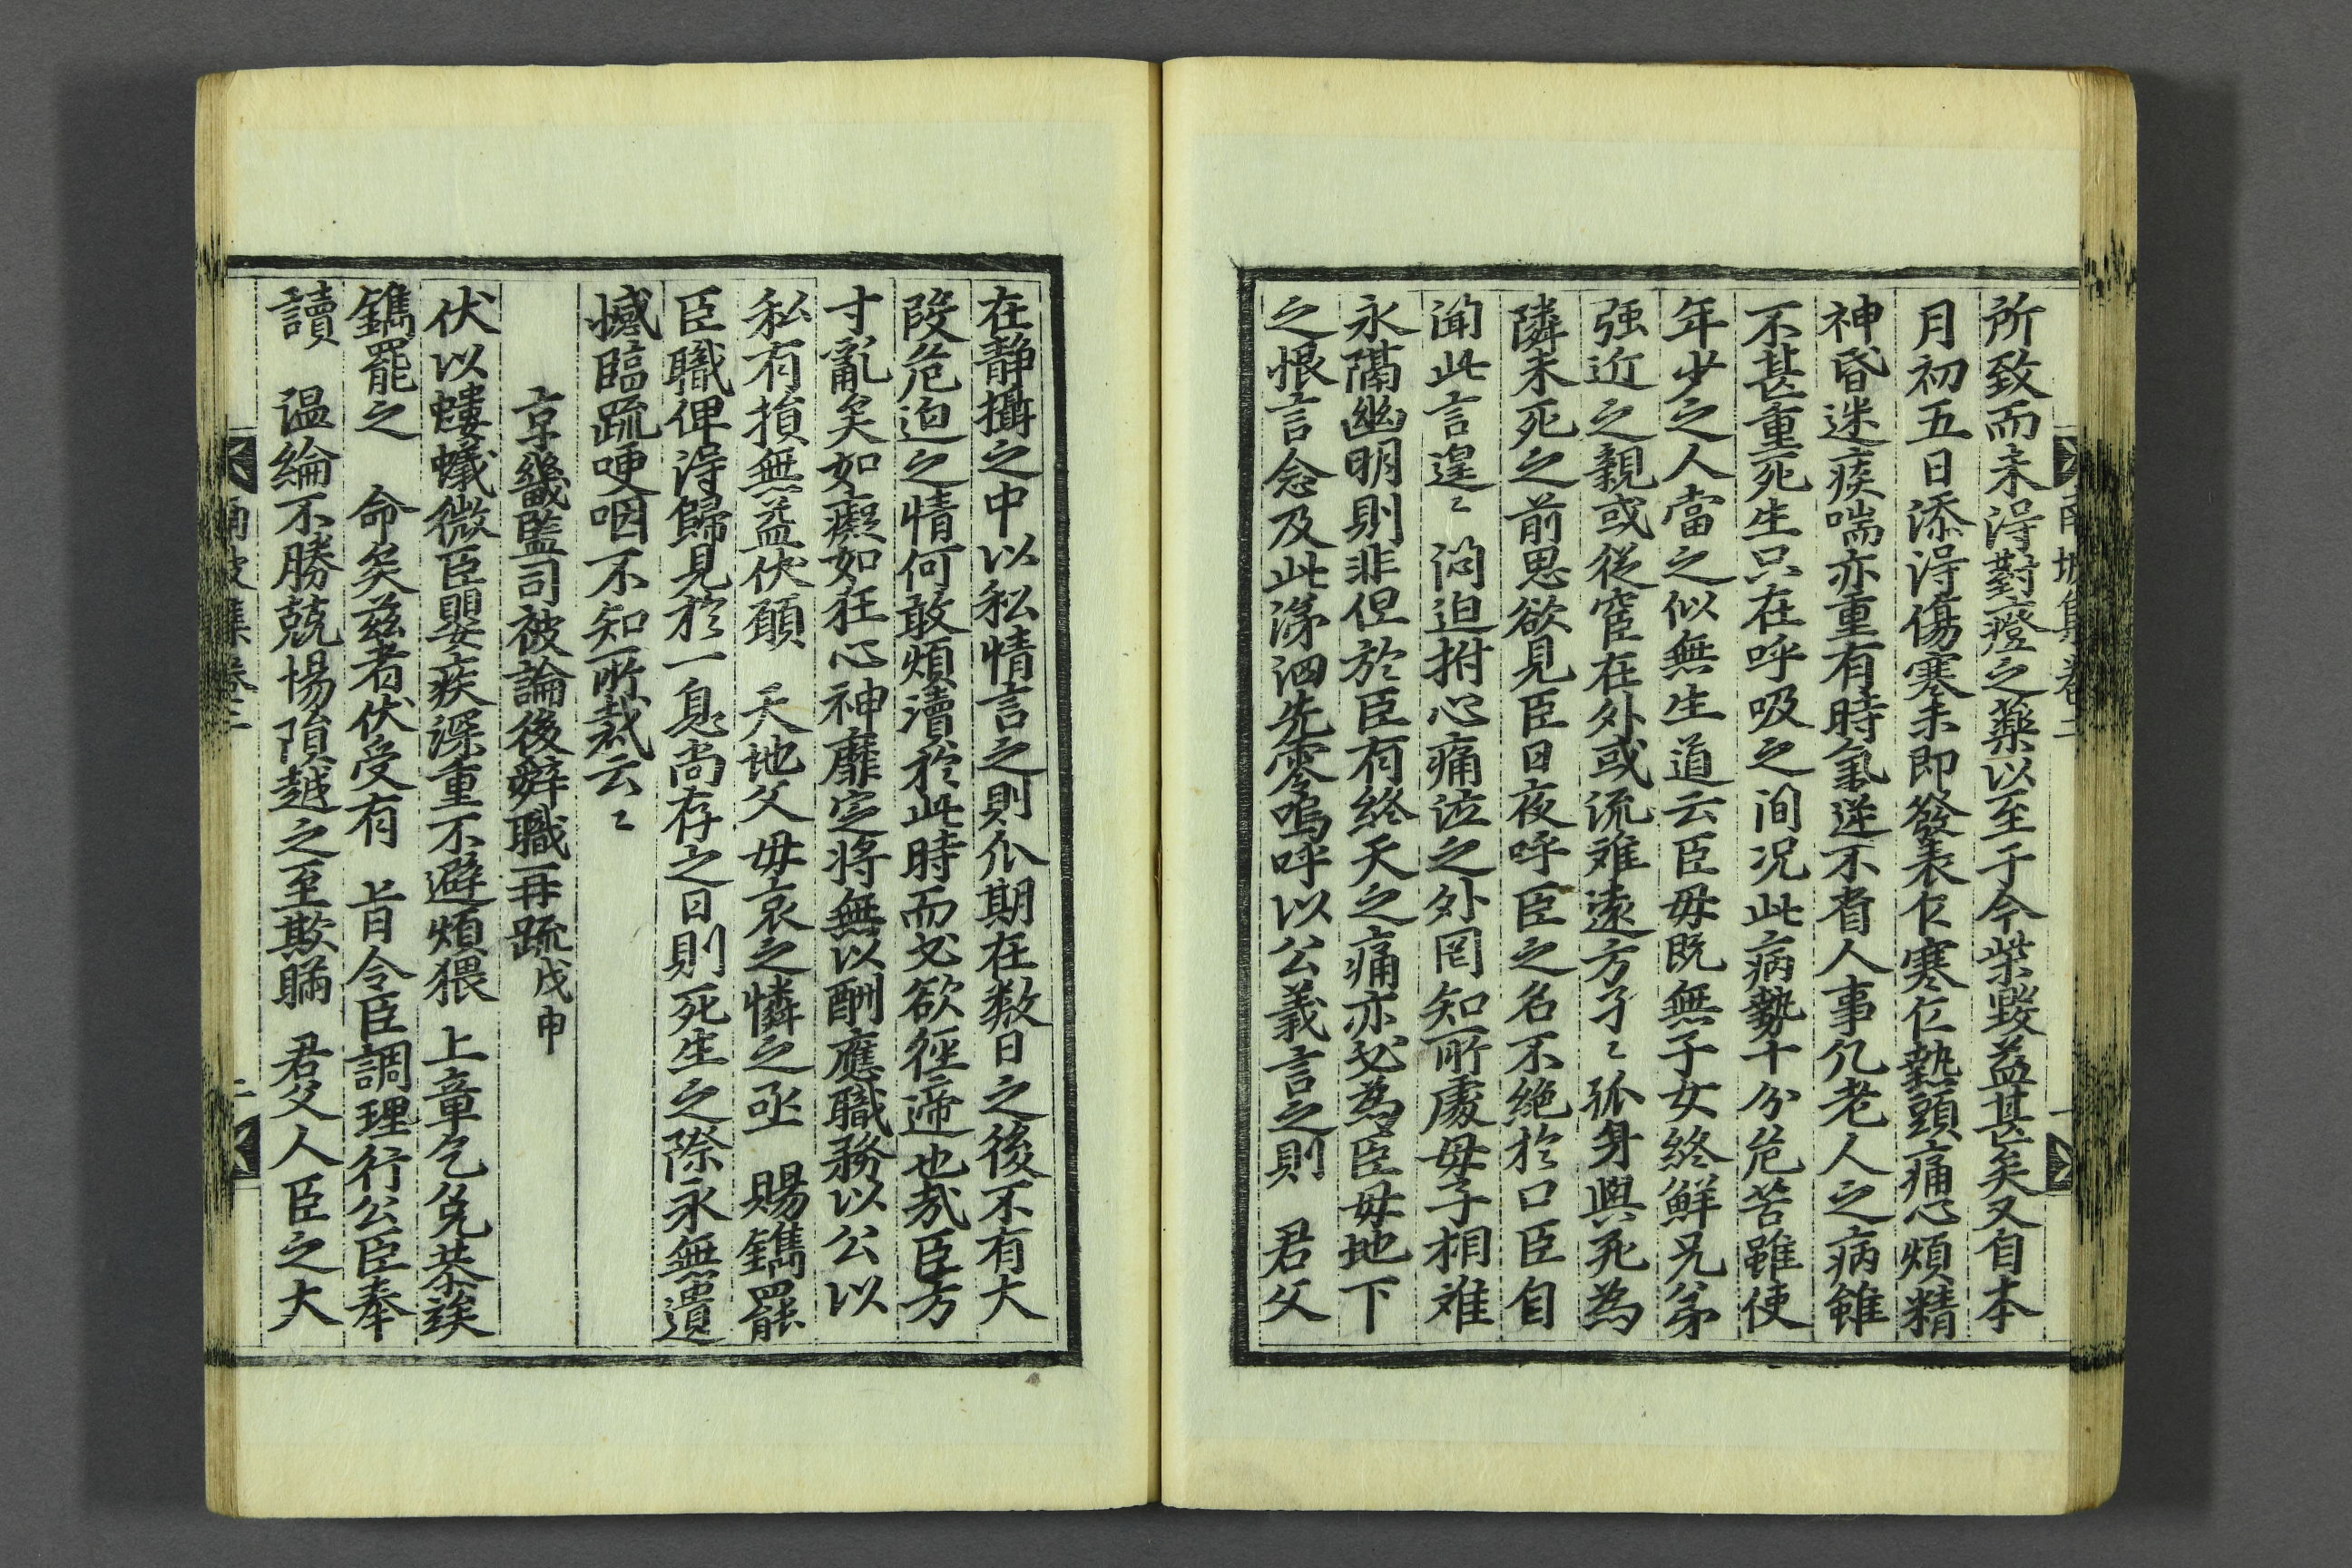 所致而未得對證之藥以至于今柴毁益甚矣又自本
月初五日添得傷寒未即發表乍寒乍熱頭痛心煩精
神昏迷痰喘亦重有時氣逆不省人事凡老人之病雖
不甚重死生只在呼吸之間况此病勢十分危苦雖使
年少之人當之似無生道云臣母既無子女終鮮兄弟
强近之親或從宦在外或流难遠方孑〻孤身與死為
隣未死之前思欲見臣日夜呼臣之名不絶於口臣自
聞此言遑〻悶迫拊心痛泣之外罔知所處母子相难
永隔幽明則非但於臣有終天之痛亦必為臣母地下
之恨言念及此涕泗先零嗚呼以公義言之則 君父
在靜攝之中以私情言之則瓜期在数日之後不有大
段危迫之情何敢煩瀆於此時而必欲徑遞也哉臣方
寸亂矣如癡如狂心神靡定將無以酬應職務以公以
私有損無益伏願 天地父母哀之憐之亟 賜鐫罷
臣職俾得歸見於一息尚存之日則死生之際永無遺
憾臨疏哽咽不知所裁云〻
京畿監司被論後辭職再疏戊申
伏以螻蟻微臣嬰疾深重不避煩猥 上章乞免恭竢
鐫罷之 命矣兹者伏受有 旨令臣調理行公臣奉
讀 温綸不勝兢惕隕越之至欺瞞 君父人臣之大
南坡集卷二